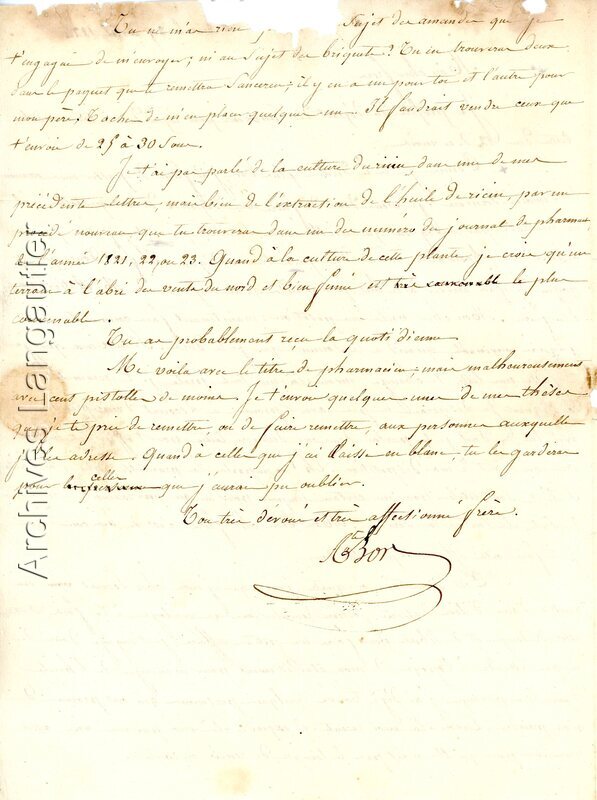 Tu ne m'as rien sujet des amandes que je
t'engageai de m'envoyer; ni au sujet des briquets? Tu en trouveras deux
dans le paquet que te remettra Sancerou; il y en a un pour toi et l'autre pour
mon père. Tache de m'en placer quelques uns. Il faudrait vendre ceux que
t'envoie de 25 à 30 sous.
Je t'ai pas parlé de la culture du ricin, dans une de mes
précédentes lettres, mais bien de l'extraction de l'huile de ricin, par un
procédé nouveau que tu trouveras dans un des numéros du journal de pharmacie
de l'année 1821, 22, ou 23. Quand à la culture de cette plante, je crois qu'un
terrain à l'abri des vents du nord et bien fumé est très convenable le plus
convenable.
Tu as probablement reçu la quotidienne
Me voila avec le titre de pharmacien; mais malheureusement
avec cens pistolles de moins. Je t'envoie quelques unes de mes thèses
que je te prie de remettre, ou de faire remettre, aux personnes auxquelles
je les adresse. Quand à celles que j'ai laissé en blanc, tu les garderas
pour celles que j'aurai pu oublier.
Ton très dévoué et très affectionné frère.
Bor
Archives Langautier